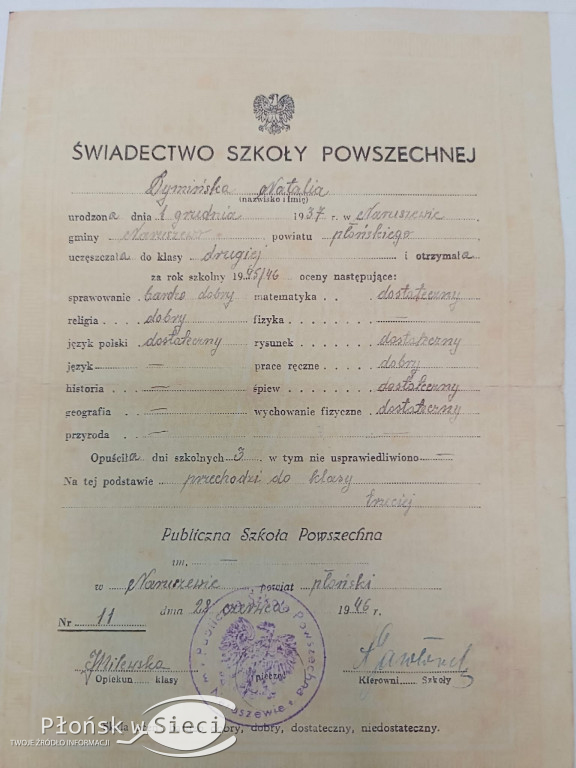 ŚWIADECTWO SZKOŁY POWSZECHNEJ
Dymińska Natalia
(nazwisko i imię)
urodzona dnia 1 grudnia 1937 r. w Naruszewie
gminy Naruszewo powiatu płońskiego
uczęszczała do klasy drugiej i otrzymała
za rok szkolny 1945/46 oceny następujące:
sprawowanie bardzo dobry matematyka dostateczny
religia dobry fizyka —
język polski dostateczny rysunek dostateczny
język — prace ręczne dobry
historia — śpiew dostateczny
geografia — wychowanie fizyczne dostateczny
przyroda —
Opuściła dni szkolnych 3 w tym nie usprawiedliwiono —
Na tej podstawie przechodzi do klasy
trzeciej
Publiczna Szkoła Powszechna
im. —
w Naruszewie powiat płoński
Nr 11 dnia 28 czerwca 1946 r.
JMilewska
Opiekun klasy pieczęć Kierowni Szkoły
Publiczna Szkoła Powszechna
dobry, dobry, dostateczny, niedostateczny.
Płońsk w Sieci
TWOJE ŹRÓDŁO INFORMACJI